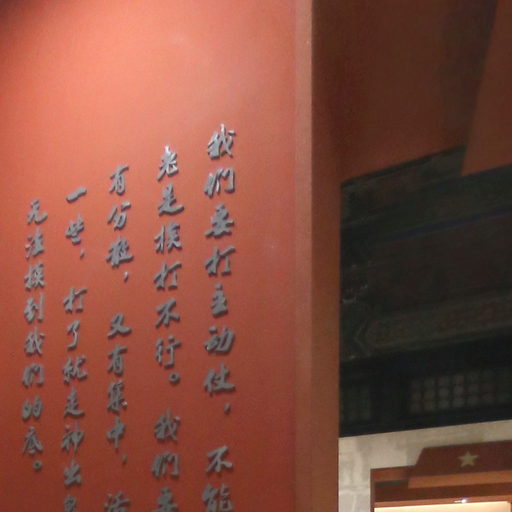 我们要打主动仗，不能
老是挨打不行。我们要
有分散，又有集中，活
一些，打了就走神出鬼
无法摸到我们的底。